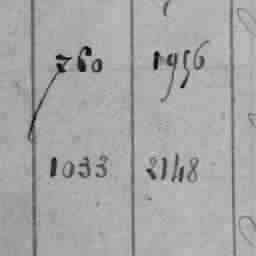 760 1956
1033 2148